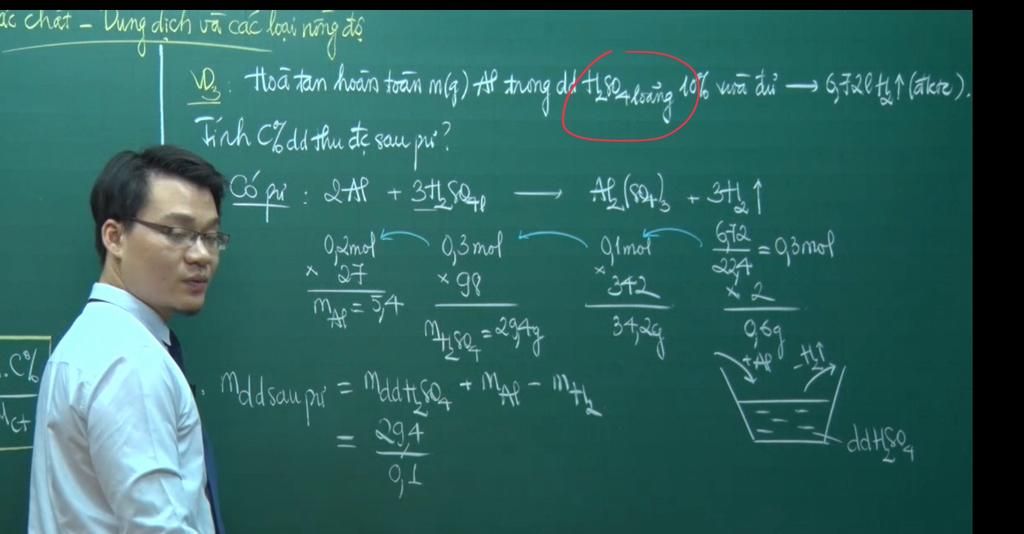 ác chất – Dung dịch và các loại nồng độ
VD3: Hoà tan hoàn toàn m(g) Al trong dd H2SO4 loãng 10% vừa đủ → 6,72l H2↑ (đktc).
Tính C% dd thu đc sau pư?
Có pư : 2Al + 3H2SO4l → Al2(SO4)3 + 3H2↑
0,2mol 0,3mol 0,1mol 6,72/22,4 = 0,3mol
× 27 × 98 × 342 × 2
mAl = 5,4 mH2SO4 = 29,4g 34,2g 0,6g
+ Al – H2↑
mdd sau pư = mddH2SO4 + mAl – mH2
= 29,4/0,1
ddH2SO4
.C%
mct